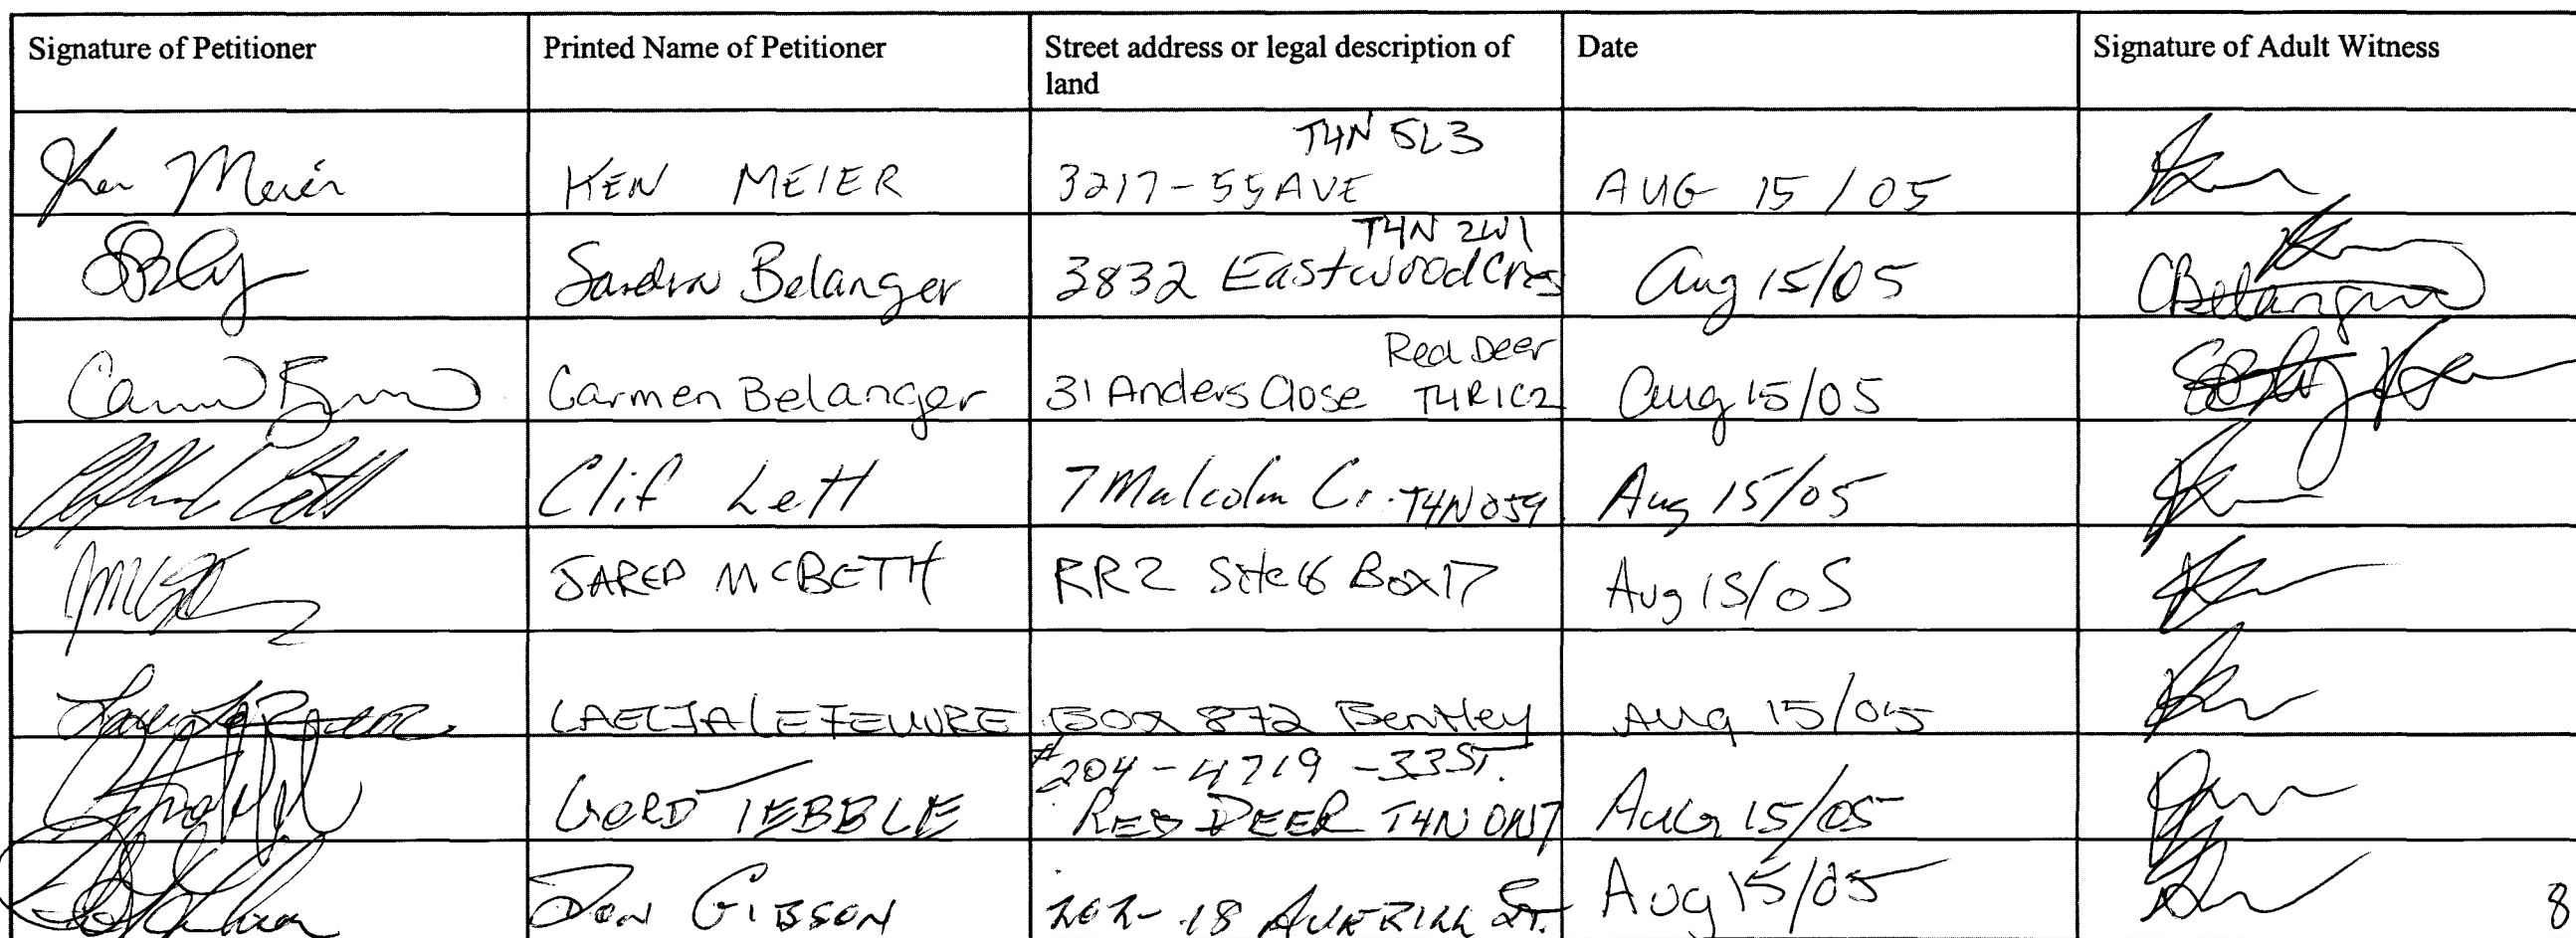 Signature of Petitioner Printed Name of Petitioner Street address or legal description of land Date Signature of Adult Witness
Ken Meier KEN MEIER 3217-55 AVE T4N 5L3 AUG 15/05
Sandra Belanger 3832 Eastwood Cres T4N 2W1 Aug 15/05 CBelanger
Carmen Belanger 31 Anders Close Red Deer T4R1C2 Aug 15/05
Clif Lett 7 Malcolm Cr. T4N Aug 15/05
JARED MCBETH RR2 Site 6 Box 17 Aug 15/05
LAETJA LEFEUVRE BOX 872 Bentley Aug 15/05
GORD TEBBLE #204-4719-33 ST. RED DEER T4N 0N7 Aug 15/05
DON GIBSON 202-18 AVERILL ST. Aug 15/05
8